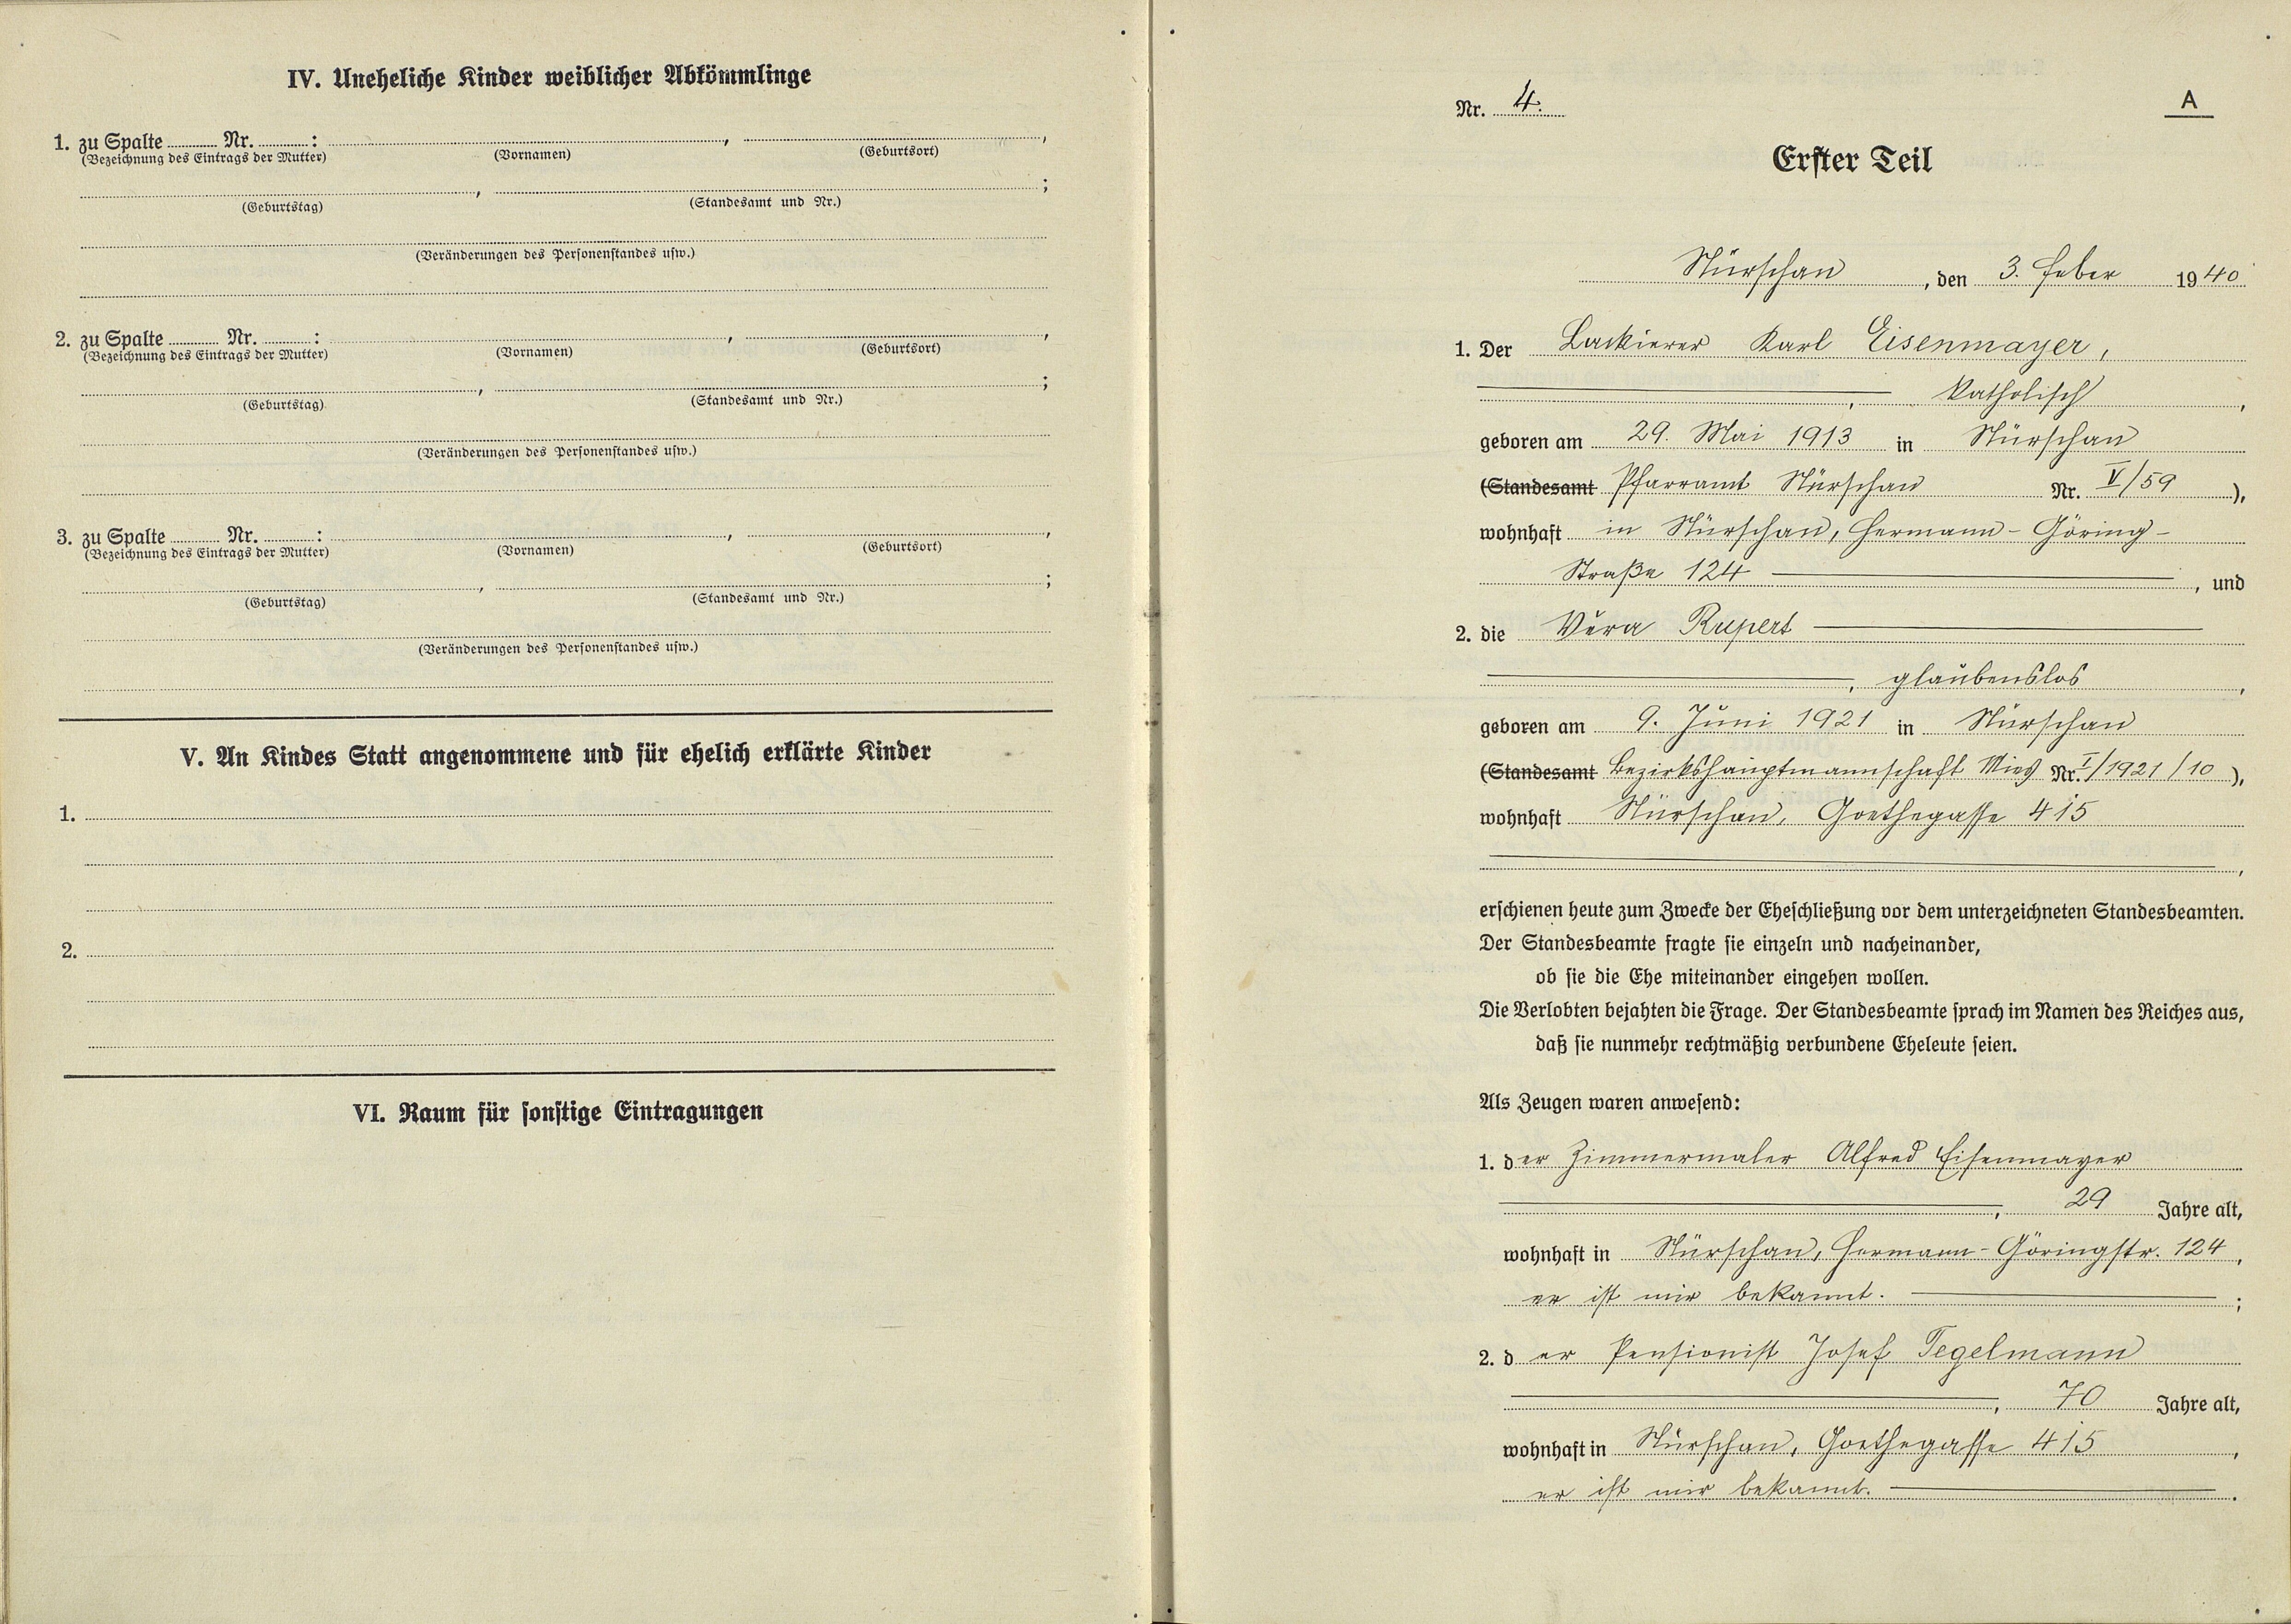 IV. Uneheliche Kinder weiblicher Abkömmlinge
1. zu Spalte ........ Nr. ........ : ........ , ........ ,
(Bezeichnung des Eintrags der Mutter) (Vornamen) (Geburtsort)
........ , ........ ;
(Geburtstag) (Standesamt und Nr.)
(Veränderungen des Personenstandes usw.)
2. zu Spalte ........ Nr. ........ : ........ , ........ ,
(Bezeichnung des Eintrags der Mutter) (Vornamen) (Geburtsort)
........ , ........ ;
(Geburtstag) (Standesamt und Nr.)
(Veränderungen des Personenstandes usw.)
3. zu Spalte ........ Nr. ........ : ........ , ........ ,
(Bezeichnung des Eintrags der Mutter) (Vornamen) (Geburtsort)
........ , ........ ;
(Geburtstag) (Standesamt und Nr.)
(Veränderungen des Personenstandes usw.)
V. An Kindes Statt angenommene und für ehelich erklärte Kinder
1.
2.
VI. Raum für sonstige Eintragungen
Nr. 4. A
Erster Teil
Nürschan, den 3. Feber 1940
1. Der Lackierer Karl Eisenmayer,
, katholisch,
geboren am 29. Mai 1913 in Nürschan
(Standesamt Pfarramt Nürschan Nr. V/59),
wohnhaft in Nürschan, Hermann-Göring-
Straße 124, und
2. die Věra Rupert
, glaubenslos,
geboren am 9. Juni 1921 in Nürschan
(Standesamt Bezirkshauptmannschaft Mies Nr. I/1921/10),
wohnhaft Nürschan, Goethegasse 415
,
erschienen heute zum Zwecke der Eheschließung vor dem unterzeichneten Standesbeamten.
Der Standesbeamte fragte sie einzeln und nacheinander,
ob sie die Ehe miteinander eingehen wollen.
Die Verlobten bejahten die Frage. Der Standesbeamte sprach im Namen des Reiches aus,
daß sie nunmehr rechtmäßig verbundene Eheleute seien.
Als Zeugen waren anwesend:
1. der Zimmermaler Alfred Eisenmayer
, 29 Jahre alt,
wohnhaft in Nürschan, Hermann-Göringstr. 124,
er ist mir bekannt. ;
2. der Pensionist Josef Tegelmann
, 70 Jahre alt,
wohnhaft in Nürschan, Goethegasse 415,
er ist mir bekannt. .